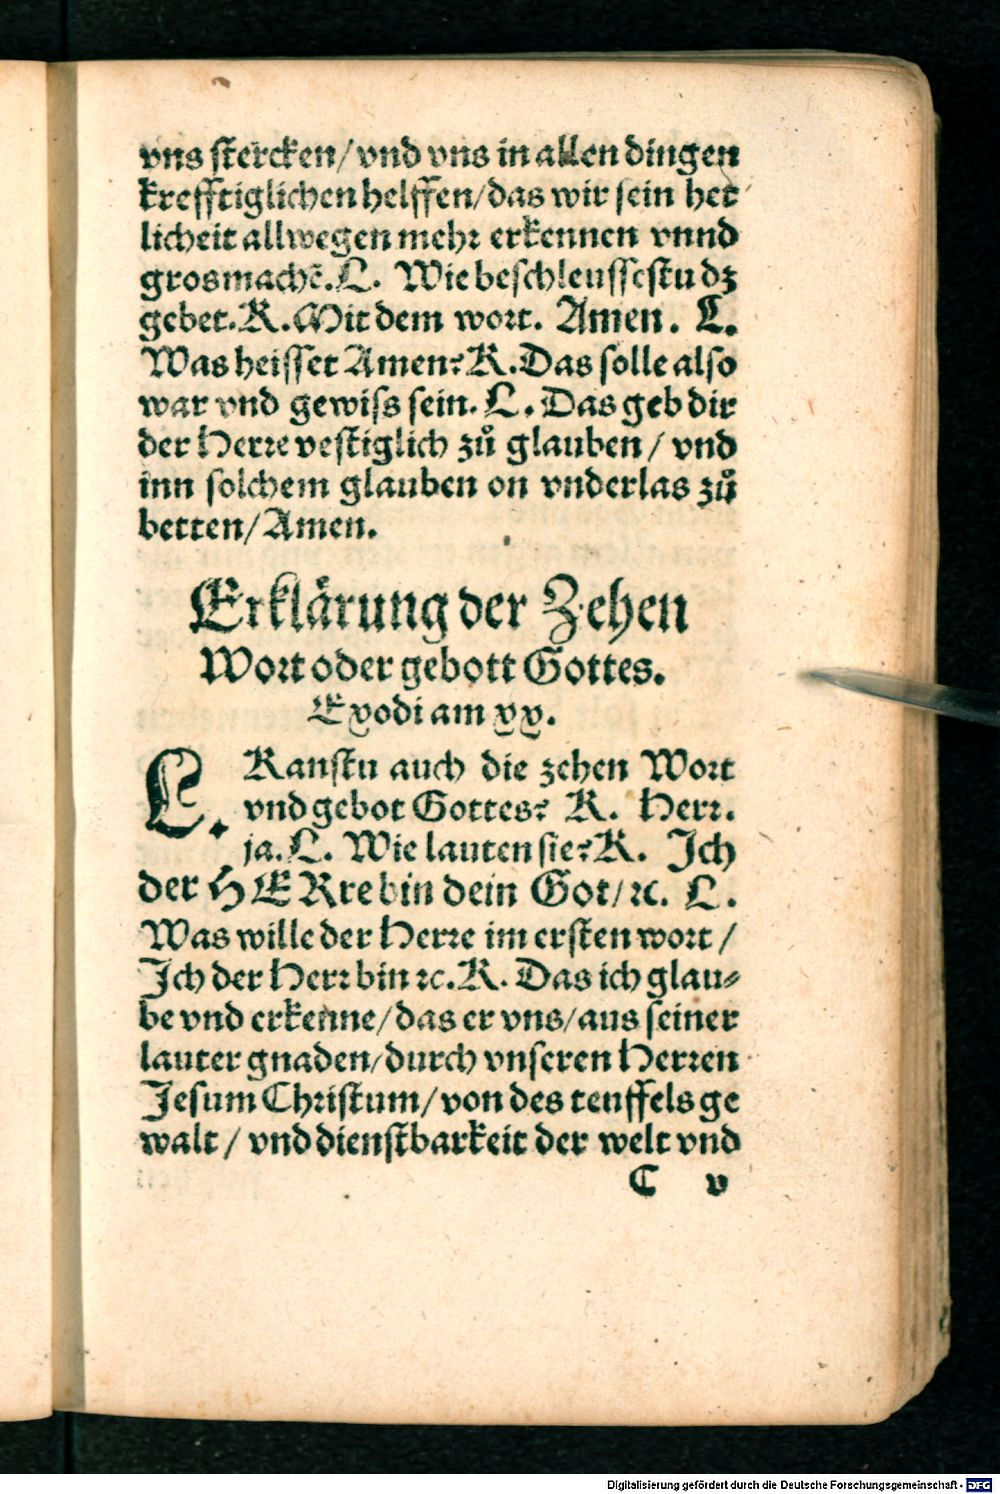 vns stercken/vnd vns in allen dingen
krefftiglichen helffen/das wir sein her
licheit allwegen mehr erkennen vnnd
grosmachē.L. Wie beschleussestu dz
gebet.K.Mit dem wort. Amen. L.
Was heisset Amen?K.Das solle also
war vnd gewiss sein. L. Das geb dir
der Herre vestiglich zů glauben / vnd
inn solchem glauben on vnderlas zů
betten/Amen.
Erklärung der Zehen
Wort oder gebott Gottes.
Exodi am xx.
L. Kanstu auch die zehen Wort
vnd gebot Gottes? K. Herr.
ja.L. Wie lauten sie?K. Ich
der HERre bin dein Got/ꝛc. L.
Was wille der Herre im ersten wort /
Ich der Herr bin ꝛc.K. Das ich glau⸗
be vnd erkenne/das er vns/aus seiner
lauter gnaden/durch vnseren Herren
Jesum Christum/von des teuffels ge
walt / vnd dienstbarkeit der welt vnd
C v
Digitalisierung gefördert durch die Deutsche Forschungsgemeinschaft - DFG